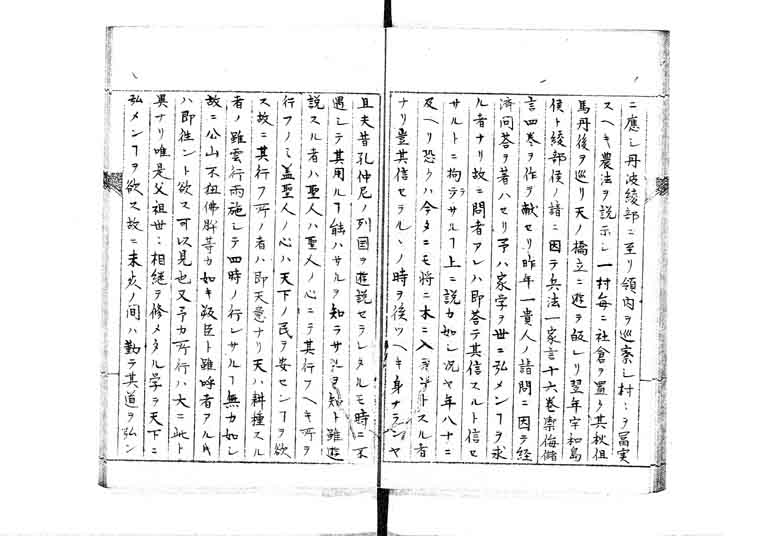 ニ應シ丹波綾部ニ至リ領内ヲ巡察シ村〻ヲ冨実
スヘキ農法ヲ説示シ一村毎ニ社倉ヲ置キ其秋但
馬丹後ヲ巡リ天ノ橋立ニ遊ヲ皈リ翌年宇和島
侯ト綾部侯ノ請ニ因テ兵法一家言十六巻禦侮儲
言四巻ヲ作テ献セリ昨年一貴人ノ請問ニ因テ経
済問荅ヲ著ハセリ予ハ家学ヲ世ニ弘メンヿヲ求
ル者ナリ故ニ問者アレハ即荅テ其信スルト信セ
サルトニ拘ラサルヿ上ニ説カ如シ况ヤ年八十ニ
及ヘリ恐クハ今タニモ将ニ木ニ入ントスル者
ナリ豈其信セラルヽノ時ヲ後ツヘキ身ナランヤ
且夫昔孔仲尼ノ列国ヲ遊説セラレタルモ時ニ不
遇シテ其用ルヿ能ハサルヲ知ラサルヲ知ト雖遊
説スル者ハ聖人ハ聖人ノ心ニテ其行フヘキ所ヲ
行フノミ盖聖人ノ心ハ天下ノ民ヲ安センヿヲ欲
ス故ニ其行フ所ノ者ハ即天意ナリ天ハ耕種スル
者ノ雖雲行雨施シテ四時ノ行レサルヿ無カ如シ
故ニ公山不狃佛肸等カ如キ叛臣ト雖呼者アルトキ
ハ即往ント欲ス可以見也又予カ所行ハ大ニ此ト
異ナリ唯是父祖世〻相継テ修メタル学ヲ天下ニ
弘メンヿヲ欲ス故ニ未亥ノ間ハ勤テ其道ヲ弘ン